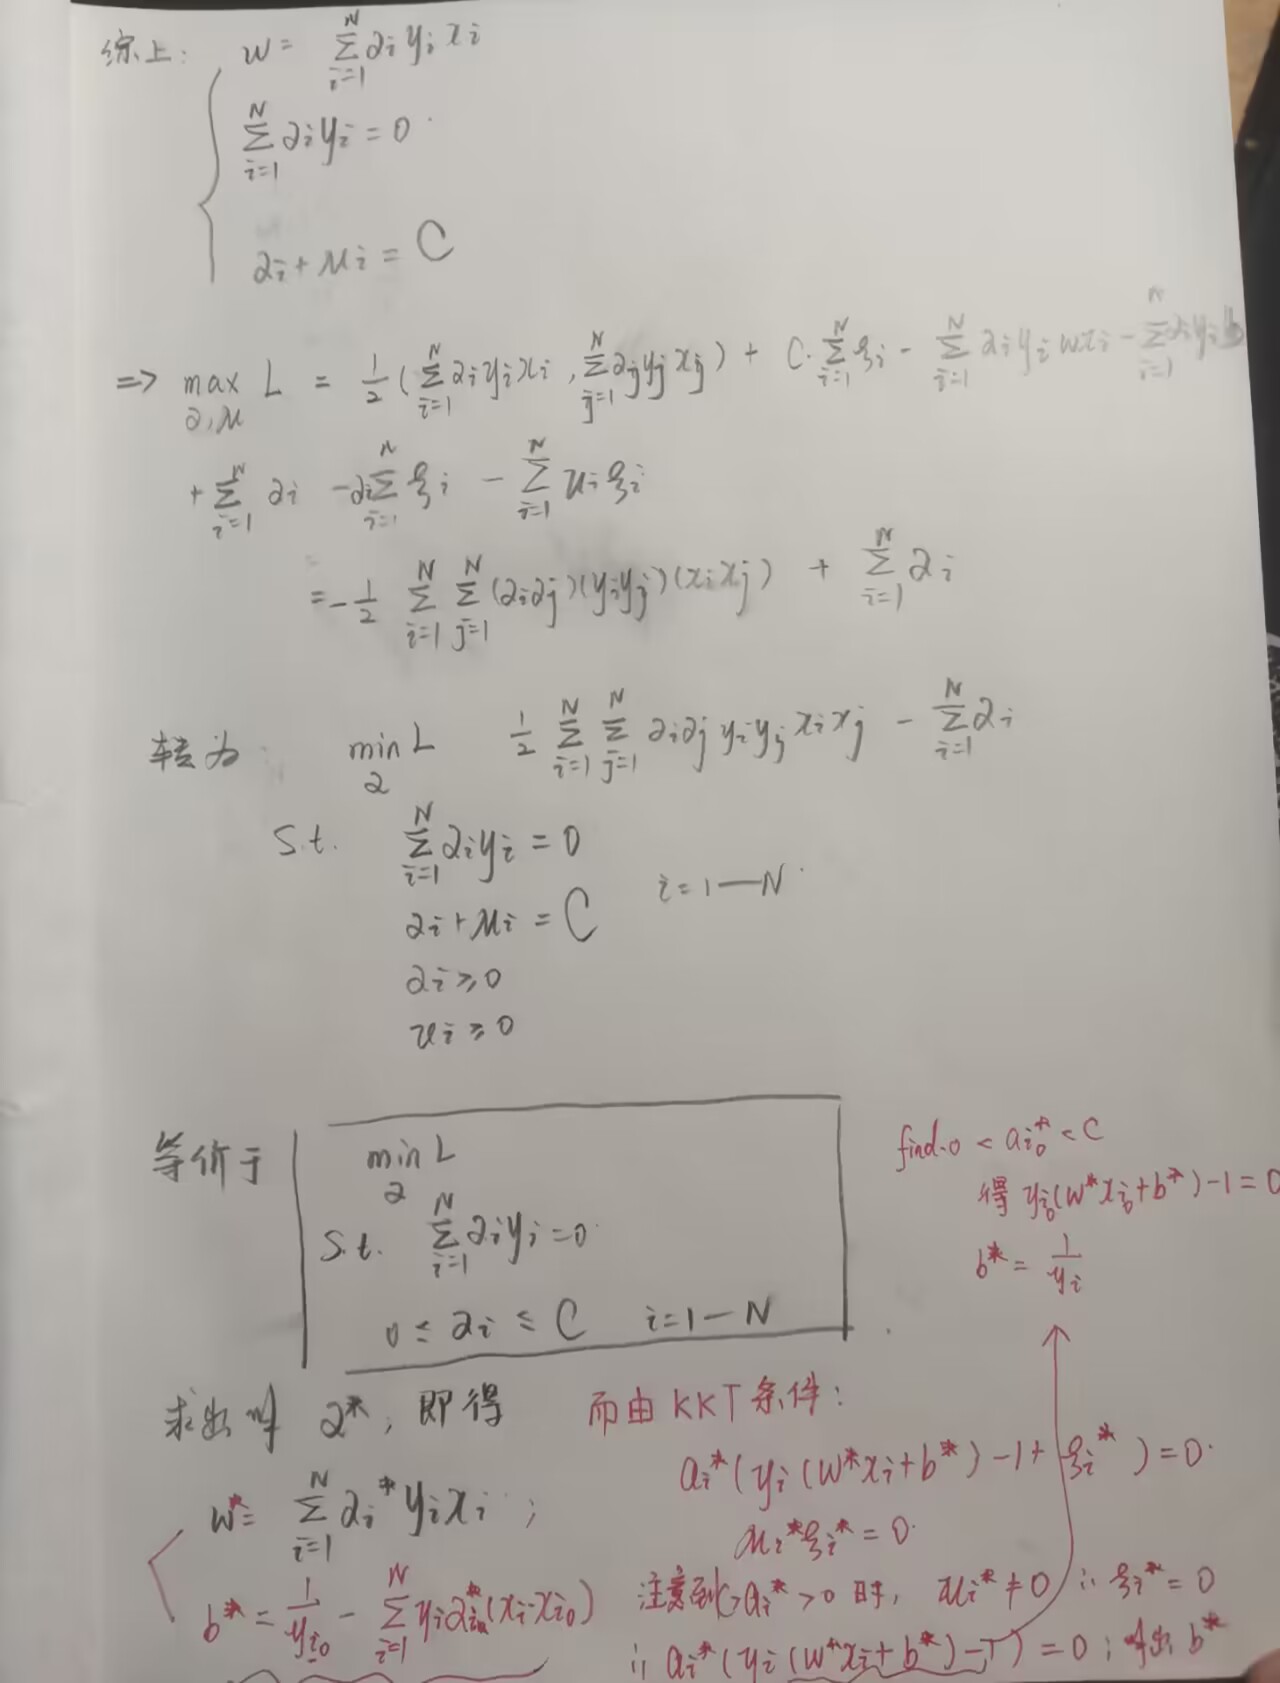 综上: w = ∑_{i=1}^{N} α_i y_i x_i
∑_{i=1}^{N} α_i y_i = 0
α_i + μ_i = C
=> max_{α,μ} L = 1/2 (∑_{i=1}^{N} α_i y_i x_i , ∑_{j=1}^{N} α_j y_j x_j) + C·∑_{i=1}^{N} ξ_i - ∑_{i=1}^{N} α_i y_i w x_i - ∑_{i=1}^{N} α_i y_i b
+ ∑_{i=1}^{N} α_i - α_i ∑_{i=1}^{N} ξ_i - ∑_{i=1}^{N} μ_i ξ_i
= -1/2 ∑_{i=1}^{N} ∑_{j=1}^{N} (α_i α_j)(y_i y_j)(x_i x_j) + ∑_{i=1}^{N} α_i
转为: min_{α} L 1/2 ∑_{i=1}^{N} ∑_{j=1}^{N} α_i α_j y_i y_j x_i x_j - ∑_{i=1}^{N} α_i
S.t. ∑_{i=1}^{N} α_i y_i = 0
i = 1 — N
α_i + μ_i = C
α_i ≥ 0
μ_i ≥ 0
等价于 min_{α} L
S.t. ∑_{i=1}^{N} α_i y_i = 0
0 ≤ α_i ≤ C i = 1 — N
find 0 < a_{i0}^* < C
得 y_{i0}(w^* x_{i0} + b^*) - 1 = 0
b^* = 1/y_i
求出 α^*, 即得
w^* = ∑_{i=1}^{N} α_i^* y_i x_i ;
b^* = 1/y_{i0} - ∑_{i=1}^{N} y_i α_i^* (x_i·x_{i0})
而由 KKT 条件:
a_i^* (y_i (w^* x_i + b^*) - 1 + ξ_i^*) = 0
μ_i^* ξ_i^* = 0
注意到 C > a_i^* > 0 时, μ_i^* ≠ 0 ∴ ξ_i^* = 0
∴ a_i^* (y_i (w^* x_i + b^*) - 1) = 0 ; 出 b^*